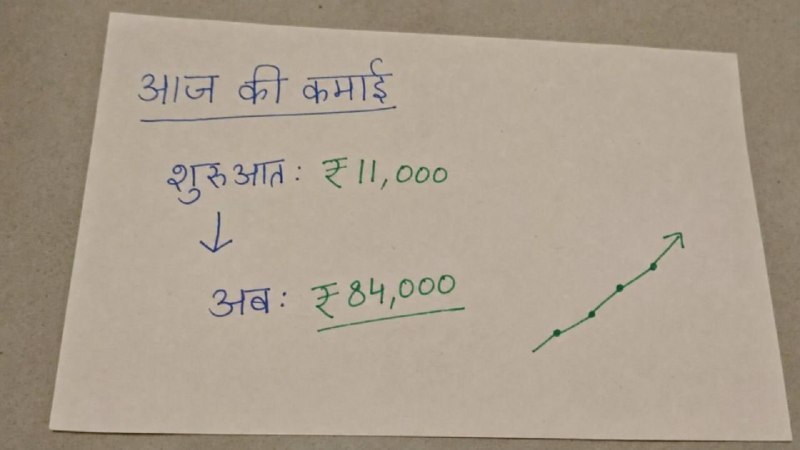 आज की कमाई
शुरुआत: ₹11,000
अब: ₹84,000